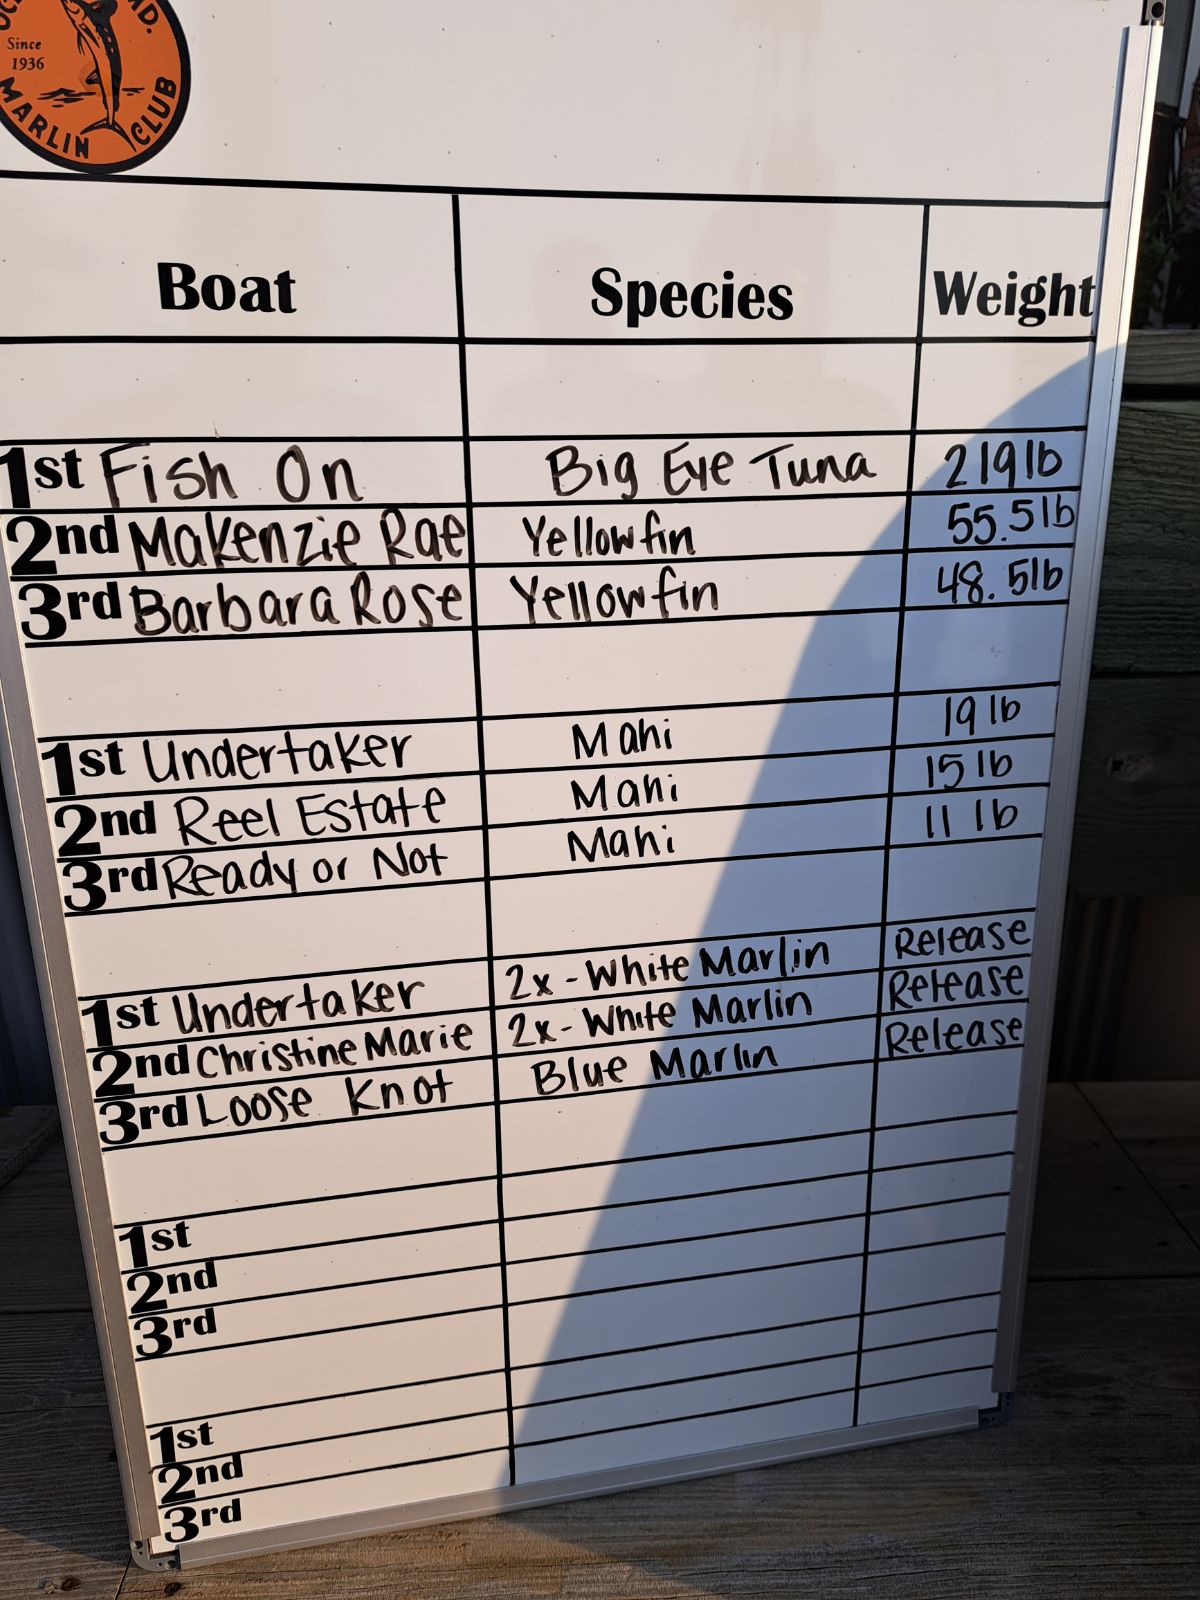 MD.
Since
1936
MARLIN CLUB
Boat Species Weight
1st Fish On Big Eye Tuna 219lb
2nd Makenzie Rae Yellowfin 55.5lb
3rd Barbara Rose Yellowfin 48.5lb
1st Undertaker Mahi 19 lb
2nd Reel Estate Mahi 15 lb
3rd Ready or Not Mahi 11 lb
1st Undertaker 2x - White Marlin Release
2nd Christine Marie 2x - White Marlin Release
3rd Loose Knot Blue Marlin Release
1st
2nd
3rd
1st
2nd
3rd